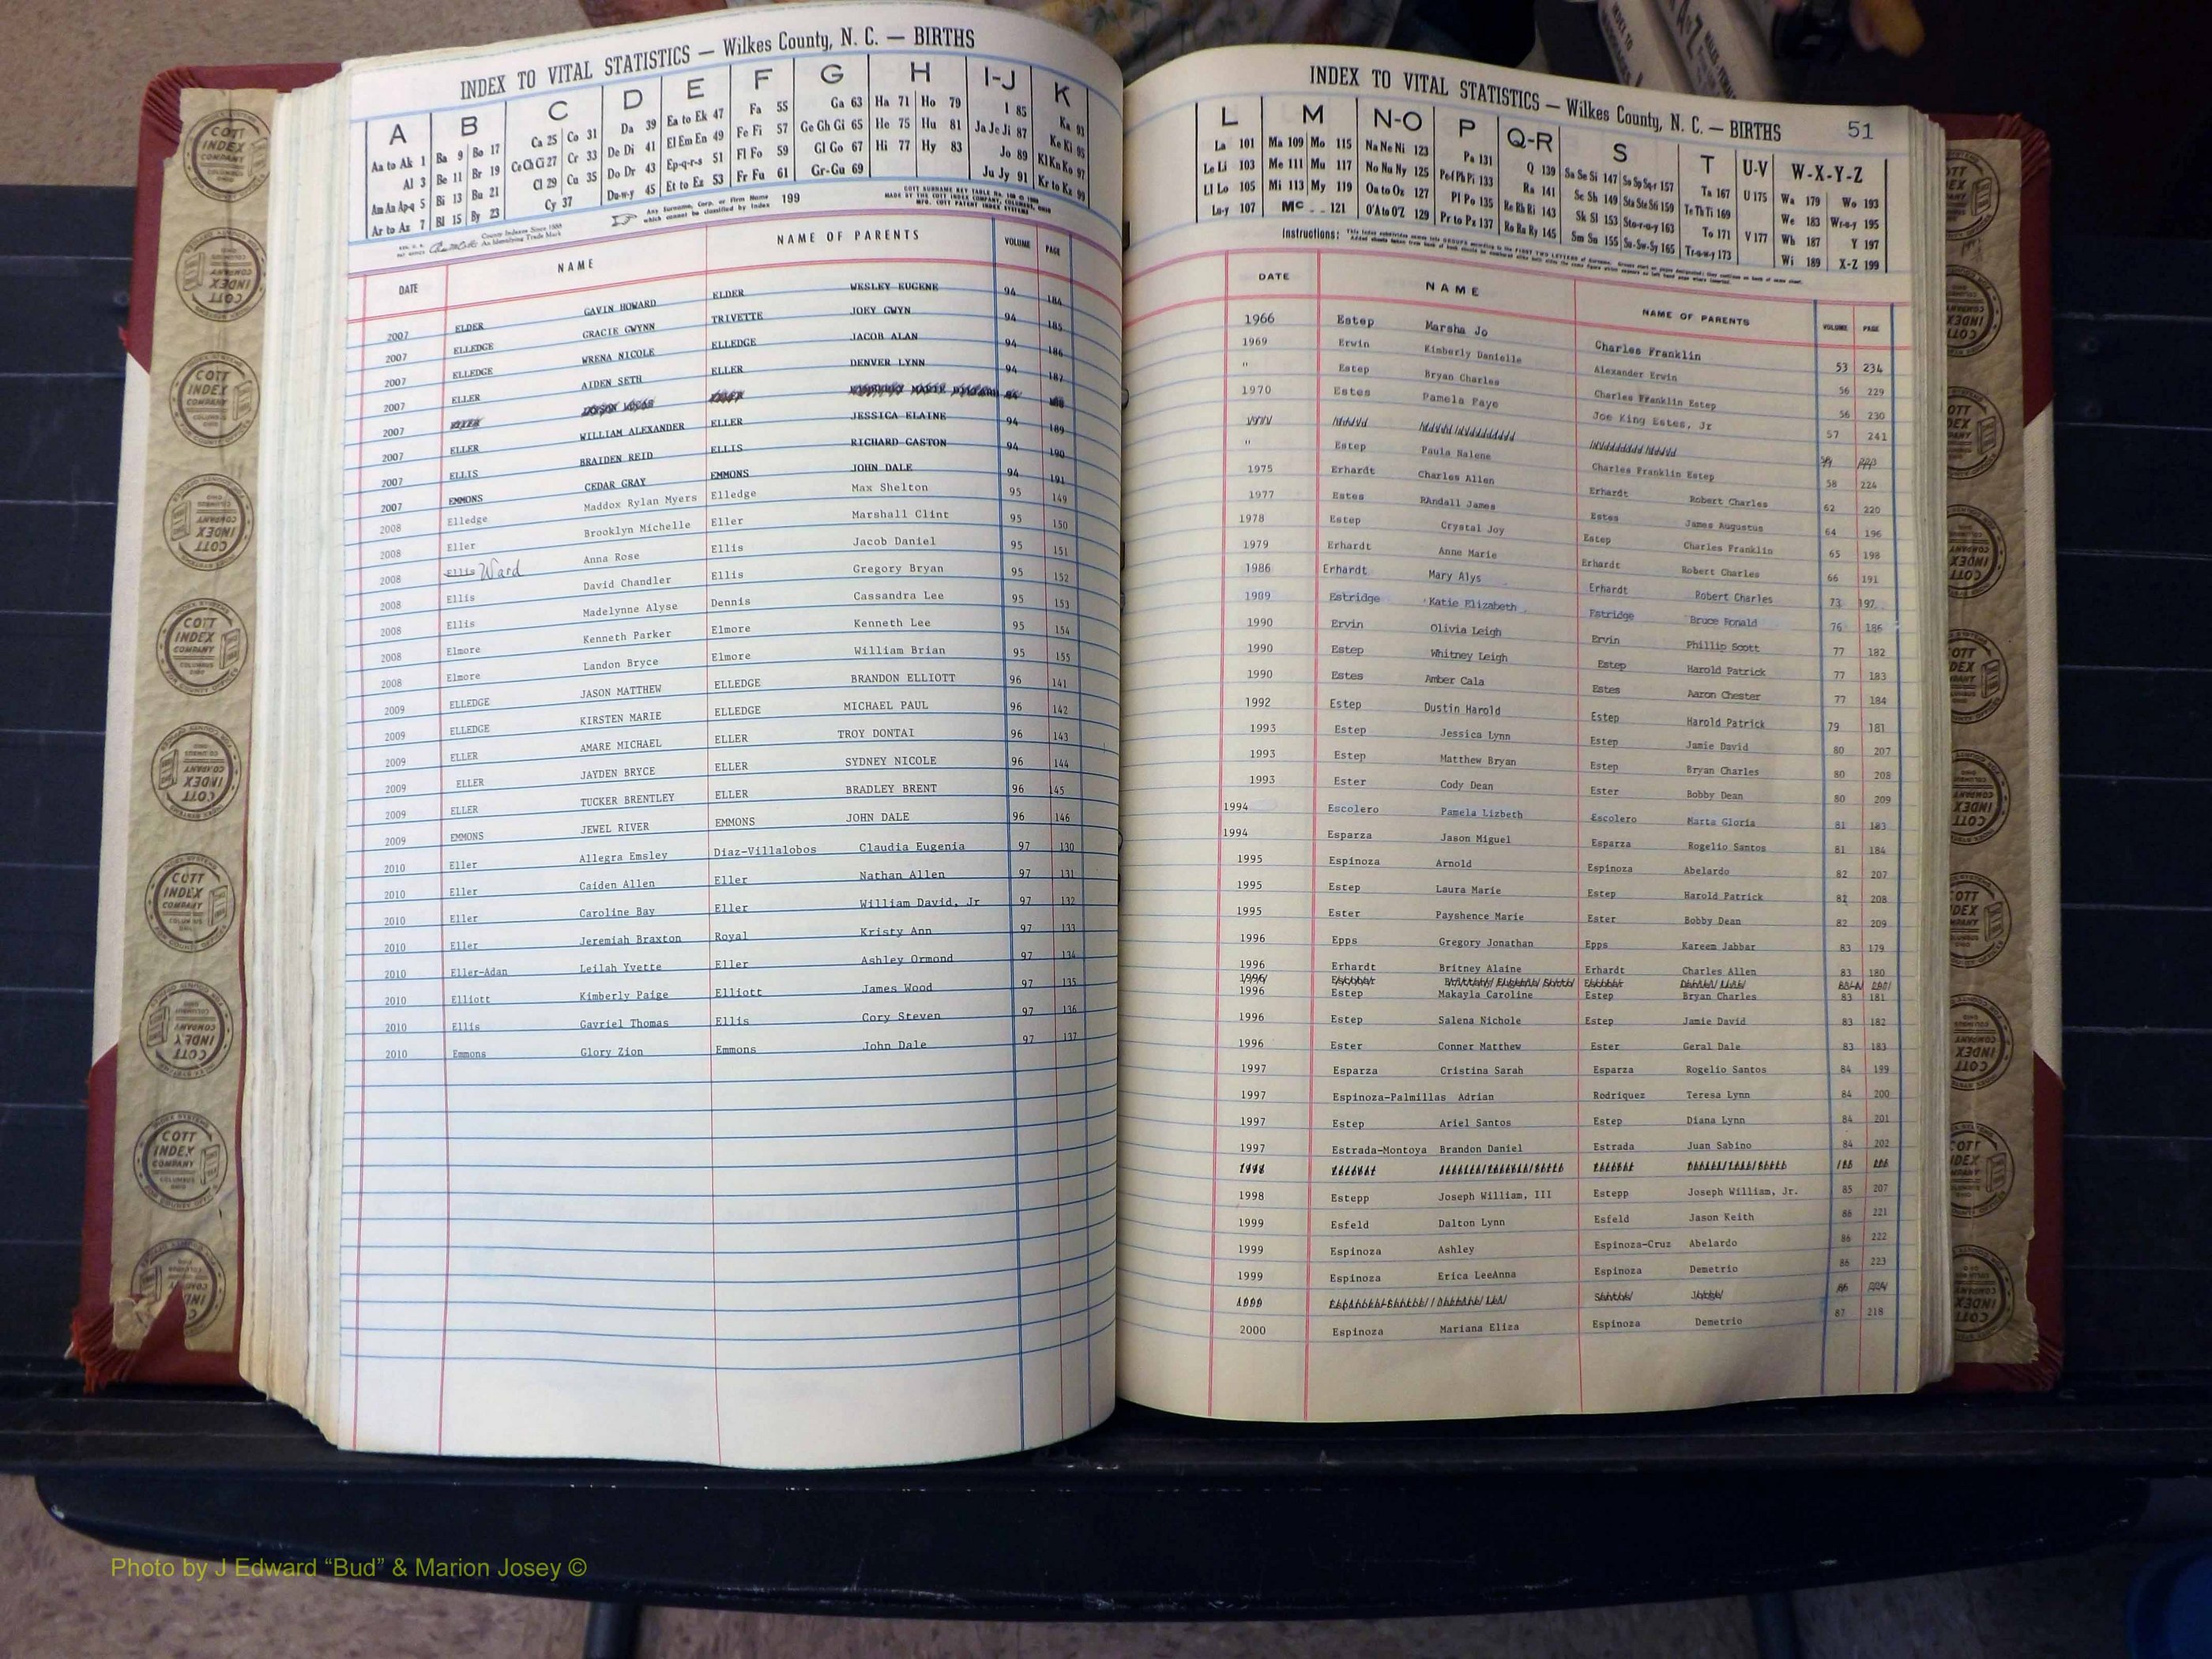 INDEX TO VITAL STATISTICS — Wilkes County, N. C. — BIRTHS
A B C D E F G H I-J K
Aa to Ak 1 Ba 9 Bo 17 Ca 25 Co 31 Da 39 Ea to Ek 47 Fa 55 Ga 63 Ha 71 Ho 79 I 85 Ka 93
Al 3 Be 11 Br 19 Ce Ch Ci 27 Cr 33 De Di 41 El Em En 49 Fe Fi 57 Ge Gh Gi 65 He 75 Hu 81 Ja Je Ji 87 Ke Ki 95
Am An Ap-q 5 Bi 13 Bu 21 Cl 29 Cu 35 Do Dr 43 Ep-q-r-s 51 Fl Fo 59 Gl Go 67 Hi 77 Hy 83 Jo 89 Kl Kn Ko 97
Ar to Az 7 Bl 15 By 23 Cy 37 Du-w-y 45 Et to Ez 53 Fr Fu 61 Gr-Gu 69 Ju Jy 91 Kr to Kz 99
Any Surname, Corp. or Firm Name which cannot be classified by Index 199
DATE NAME NAME OF PARENTS VOLUME PAGE
2007 ELDER GAVIN HOWARD ELDER WESLEY EUGENE 94 184
2007 ELLEDGE GRACIE GWYNN TRIVETTE JOEY GWYN 94 185
2007 ELLEDGE WRENA NICOLE ELLEDGE JACOB ALAN 94 186
2007 ELLER AIDEN SETH ELLER DENVER LYNN 94 187
2007
2007 ELLER WILLIAM ALEXANDER ELLER JESSICA ELAINE 94 189
2007 ELLIS BRAIDEN REID ELLIS RICHARD GASTON 94 190
2007 EMMONS CEDAR GRAY EMMONS JOHN DALE 94 191
2008 Elledge Maddox Rylan Myers Elledge Max Shelton 95 149
2008 Eller Brooklyn Michelle Eller Marshall Clint 95 150
2008 Ellis Ward Anna Rose Ellis Jacob Daniel 95 151
2008 Ellis David Chandler Ellis Gregory Bryan 95 152
2008 Ellis Madelynne Alyse Dennis Cassandra Lee 95 153
2008 Elmore Kenneth Parker Elmore Kenneth Lee 95 154
2008 Elmore Landon Bryce Elmore William Brian 95 155
2009 ELLEDGE JASON MATTHEW ELLEDGE BRANDON ELLIOTT 96 141
2009 ELLEDGE KIRSTEN MARIE ELLEDGE MICHAEL PAUL 96 142
2009 ELLER AMARE MICHAEL ELLER TROY DONTAI 96 143
2009 ELLER JAYDEN BRYCE ELLER SYDNEY NICOLE 96 144
2009 ELLER TUCKER BRENTLEY ELLER BRADLEY BRENT 96 145
2009 EMMONS JEWEL RIVER EMMONS JOHN DALE 96 146
2010 Eller Allegra Emsley Diaz-Villalobos Claudia Eugenia 97 130
2010 Eller Caiden Allen Eller Nathan Allen 97 131
2010 Eller Caroline Bay Eller William David, Jr 97 132
2010 Eller Jeremiah Braxton Royal Kristy Ann 97 133
2010 Eller-Adan Leilah Yvette Eller Ashley Ormond 97 134
2010 Elliott Kimberly Paige Elliott James Wood 97 135
2010 Ellis Gavriel Thomas Ellis Cory Steven 97 136
2010 Emmons Glory Zion Emmons John Dale 97 137
INDEX TO VITAL STATISTICS — Wilkes County, N. C. — BIRTHS 51
L M N-O P Q-R S T U-V W-X-Y-Z
La 101 Ma 109 Mo 115 Na Ne Ni 123 Pa 131 Q 139 Sa Se Si 147 Sa Sp Sq-r 157 Ta 167 U 175 Wa 179 Wo 193
Le Li 103 Me 111 Mu 117 No Nu Ny 125 Pe-f Ph Pi 133 Ra 141 Se Sh 149 Sta Ste Sti 159 Te Th Ti 169 We 183 Wr-o-y 195
Ll Lo 105 Mi 113 My 119 Oa to Oz 127 Pl Po 135 Re Rh Ri 143 Sk Sl 153 Sto-r-u-y 163 To 171 V 177 Wh 187 Y 197
Lu-y 107 Mc 121 O'A to O'Z 129 Pr to Pz 137 Ro Ru Ry 145 Sm Sn 155 Su-Sw-Sy 165 Tr-u-w-y 173 Wi 189 X-Z 199
Instructions:
DATE NAME NAME OF PARENTS VOLUME PAGE
1966 Estep Marsha Jo Charles Franklin 53 234
1969 Erwin Kimberly Danielle Alexander Erwin 56 229
" Estep Bryan Charles Charles Franklin Estep 56 230
1970 Estes Pamela Faye Joe King Estes, Jr 57 241
" Estep Paula Nalene Charles Franklin Estep 58 224
1975 Erhardt Charles Allen Erhardt Robert Charles 62 220
1977 Estes RAndall James Estes James Augustus 64 196
1978 Estep Crystal Joy Estep Charles Franklin 65 198
1979 Erhardt Anne Marie Erhardt Robert Charles 66 191
1986 Erhardt Mary Alys Erhardt Robert Charles 73 197
1989 Estridge Katie Elizabeth Estridge Bruce Ronald 76 186
1990 Ervin Olivia Leigh Ervin Phillip Scott 77 182
1990 Estep Whitney Leigh Estep Harold Patrick 77 183
1990 Estes Amber Cala Estes Aaron Chester 77 184
1992 Estep Dustin Harold Estep Harold Patrick 79 181
1993 Estep Jessica Lynn Estep Jamie David 80 207
1993 Estep Matthew Bryan Estep Bryan Charles 80 208
1993 Ester Cody Dean Ester Bobby Dean 80 209
1994 Escolero Pamela Lizbeth Escolero Marta Gloria 81 183
1994 Esparza Jason Miguel Esparza Rogelio Santos 81 184
1995 Espinoza Arnold Espinoza Abelardo 82 207
1995 Estep Laura Marie Estep Harold Patrick 82 208
1995 Ester Payshence Marie Ester Bobby Dean 82 209
1996 Epps Gregory Jonathan Epps Kareem Jabbar 83 179
1996 Erhardt Britney Alaine Erhardt Charles Allen 83 180
1996
1996 Estep Makayla Caroline Estep Bryan Charles 83 181
1996 Estep Salena Nichole Estep Jamie David 83 182
1996 Ester Conner Matthew Ester Geral Dale 83 183
1997 Esparza Cristina Sarah Esparza Rogelio Santos 84 199
1997 Espinoza-Palmillas Adrian Rodriquez Teresa Lynn 84 200
1997 Estep Ariel Santos Estep Diana Lynn 84 201
1997 Estrada-Montoya Brandon Daniel Estrada Juan Sabino 84 202
1998 Estepp Joseph William, III Estepp Joseph William, Jr. 85 207
1999 Esfeld Dalton Lynn Esfeld Jason Keith 86 221
1999 Espinoza Ashley Espinoza-Cruz Abelardo 86 222
1999 Espinoza Erica LeeAnna Espinoza Demetrio 86 223
1999
2000 Espinoza Mariana Eliza Espinoza Demetrio 87 218
COTT INDEX COMPANY COLUMBUS OHIO
Photo by J Edward “Bud” & Marion Josey ©